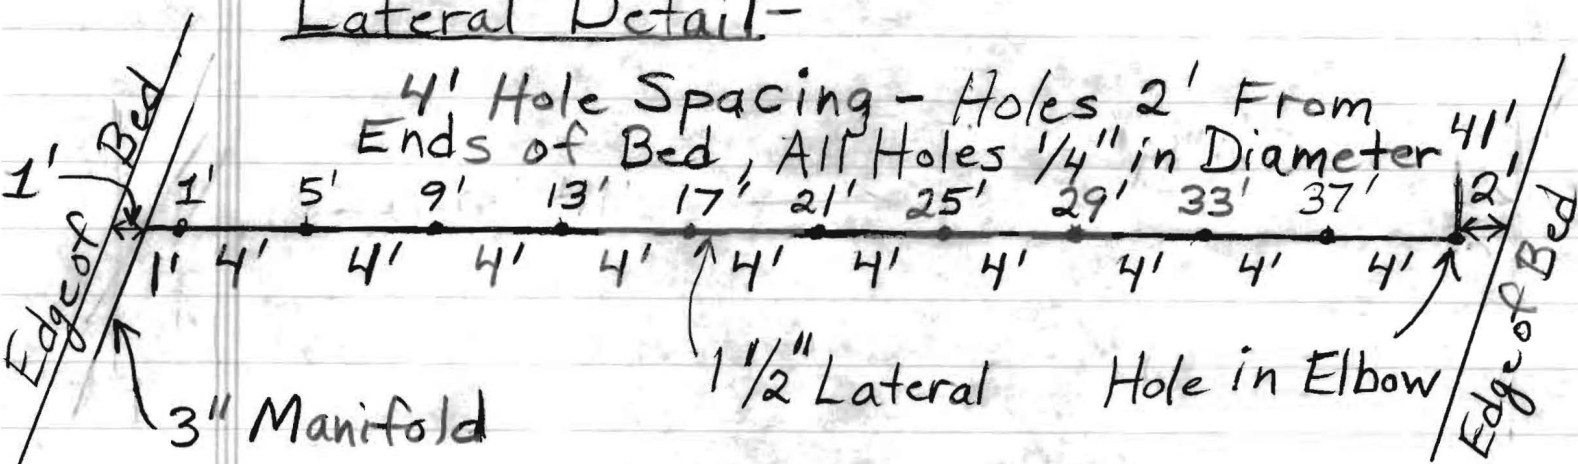 Lateral Detail-
4' Hole Spacing - Holes 2' From
Ends of Bed, All Holes 1/4" in Diameter
41'
1'
Edge of Bed
1' 5' 9' 13' 17' 21' 25' 29' 33' 37'
2'
1' 4' 4' 4' 4' 4' 4' 4' 4' 4' 4'
Edge of Bed
1 1/2" Lateral
Hole in Elbow
3" Manifold